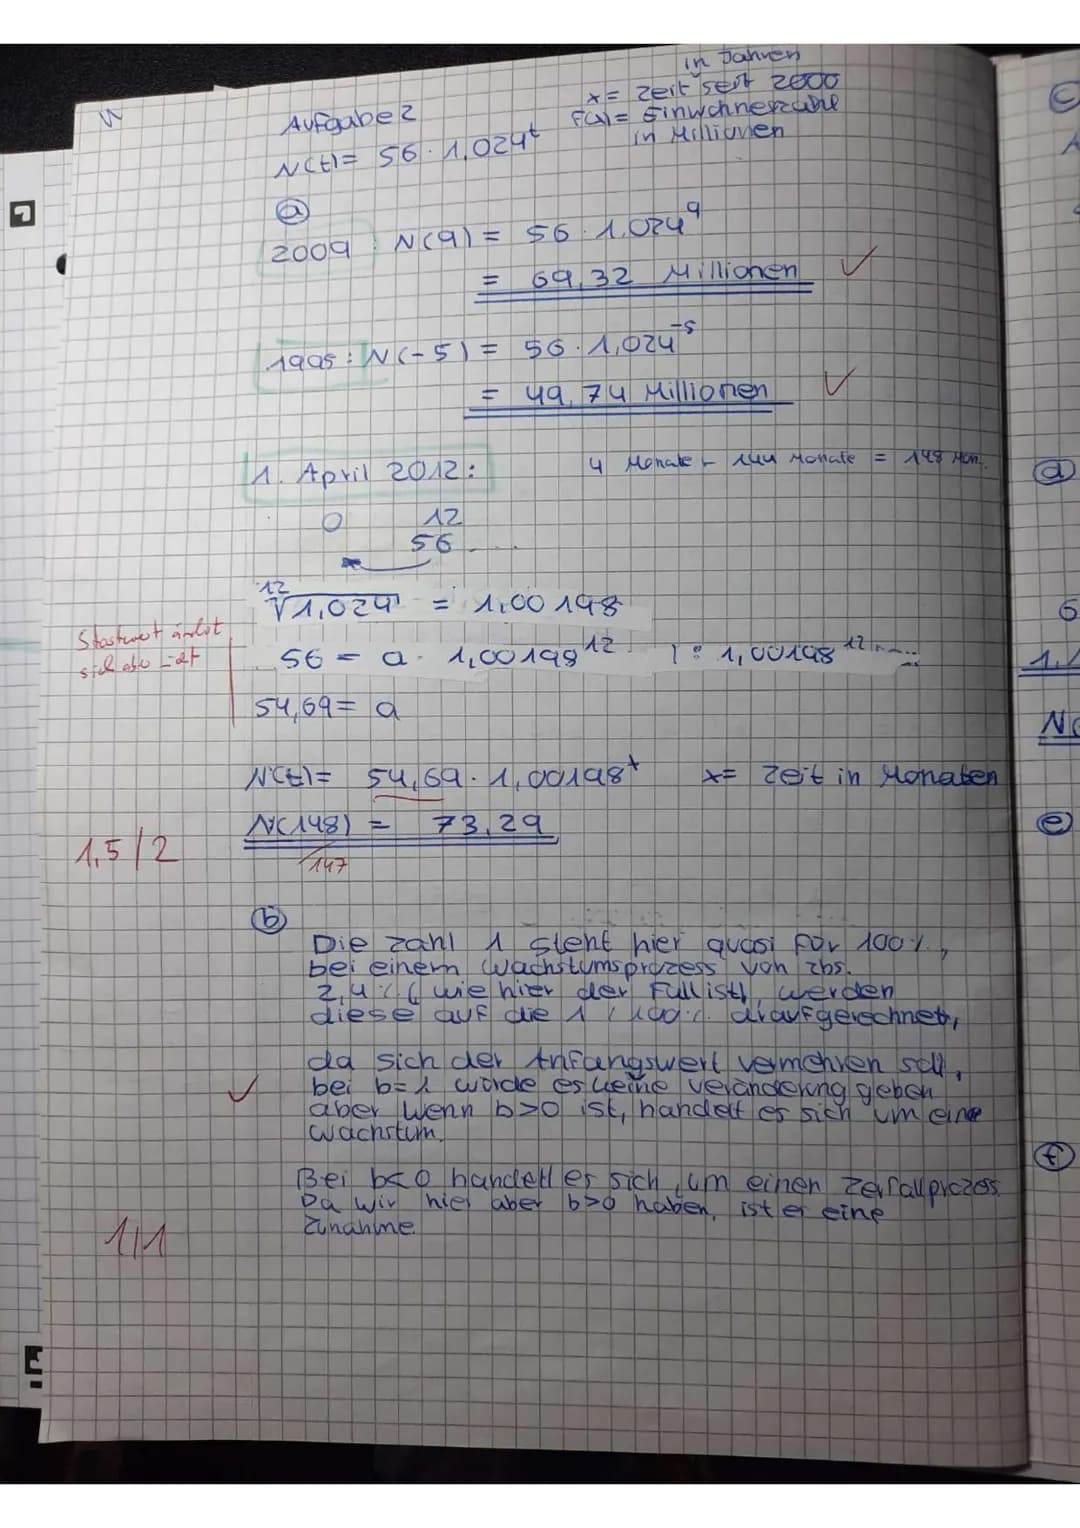 in Jahren
x = Zeit seit 2000
Aufgabe 2
F(x) = Einwohnerzahl
in Millionen
N(t) = 56 · 1,024^t
a
2009 : N(9) = 56 · 1.024^9
= 69,32 Millionen ✓
1995 : N(-5) = 56 · 1,024^-5
= 49,74 Millionen ✓
1. April 2012: 4 Monate + 144 Monate = 148 Mon.
0 12
56
12√1,024 = 1,00198
Startwert ändert
sich aber
56 = a · 1,00198^12 | : 1,00198^12
54,69 = a
N(t) = 54,69 · 1,00198^t x = Zeit in Monaten
N(148) = 73,29
147
1,5/2
b
Die Zahl 1 steht hier quasi für 100%,
bei einem Wachstumsprozess von zbs.
2,4% (wie hier der Fall ist), werden
diese auf die 1 / 100% draufgerechnet,
da sich der Anfangswert vermehren soll,
bei b=1 würde es keine Veränderung geben
aber wenn b>0 ist, handelt es sich um eine
Wachstum.
✓
Bei b<0 handelt es sich um einen Zerfallprozess
Da wir hier aber b>0 haben, ist es eine
Zunahme.
1/1
C
d
6
1.
N
e
f